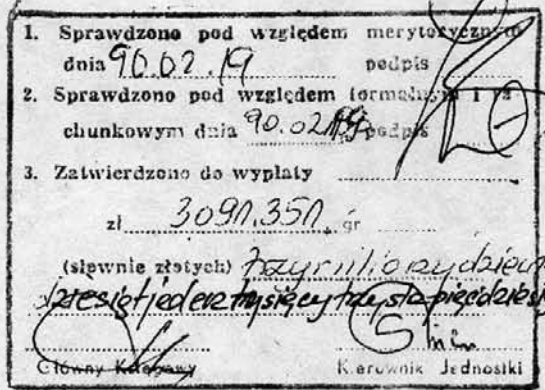 1. Sprawdzono pod względem merytorycznym
dnia 90.02.19 podpis
2. Sprawdzono pod względem formalnym i ra-
chunkowym dnia 90.02.19 podpis
3. Zatwierdzono do wypłaty
zł 3091.351, gr
(słownie złotych) trzy miliony dziew
dziesiąt jeden tysięcy trzysta pięćdziesią
Główny Księgowy Kierownik Jednostki